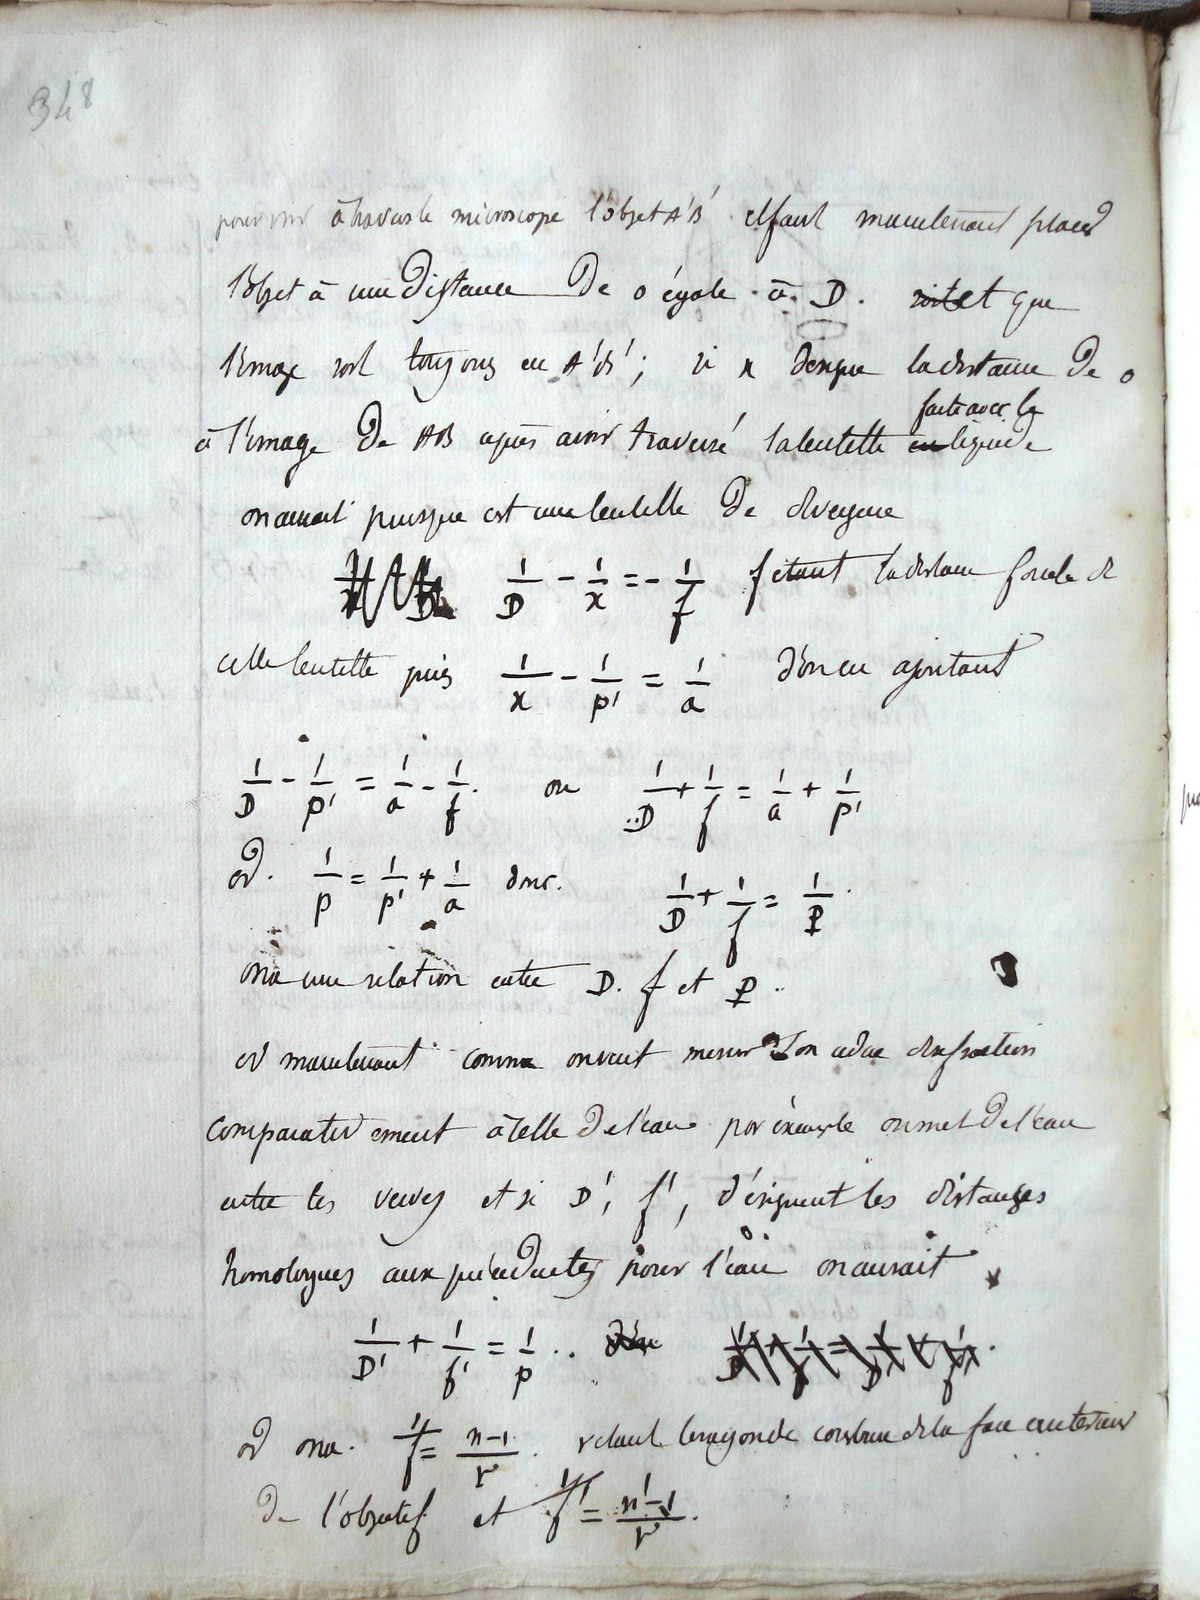 348
pour voir à travers le microscope l'objet A'B' il faut maintenant placer
l'objet à une distance De o égale à D. soit et que
l'image soit toujours en A'B'; si x désigne la distance De o
faite avec le
à l'image De AB après avoir traversé la lentille en liquide
on aurait puisque c'est une lentille De divergence
1/D - 1/x = - 1/f f étant la distance focale de
cette lentille puis 1/x - 1/p' = 1/a D'où en ajoutant
1/D - 1/p' = 1/a - 1/f. ou 1/D + 1/f = 1/a + 1/p'
or. 1/p = 1/p' + 1/a donc. 1/D + 1/f = 1/P.
on a une relation entre D. f et P..
or maintenant comme on veut mesurer Son indice de réfraction
comparativement à celle De l'eau par exemple on met De l'eau
entre les verres et si D', f', désignent les distances
homologues aux précédentes pour l'eau on aurait
1/D' + 1/f' = 1/p ..
or on a. 1/f = n-1/r. r étant le rayon de courbure de la face extérieur
De l'objectif et 1/f' = n'-1/r.